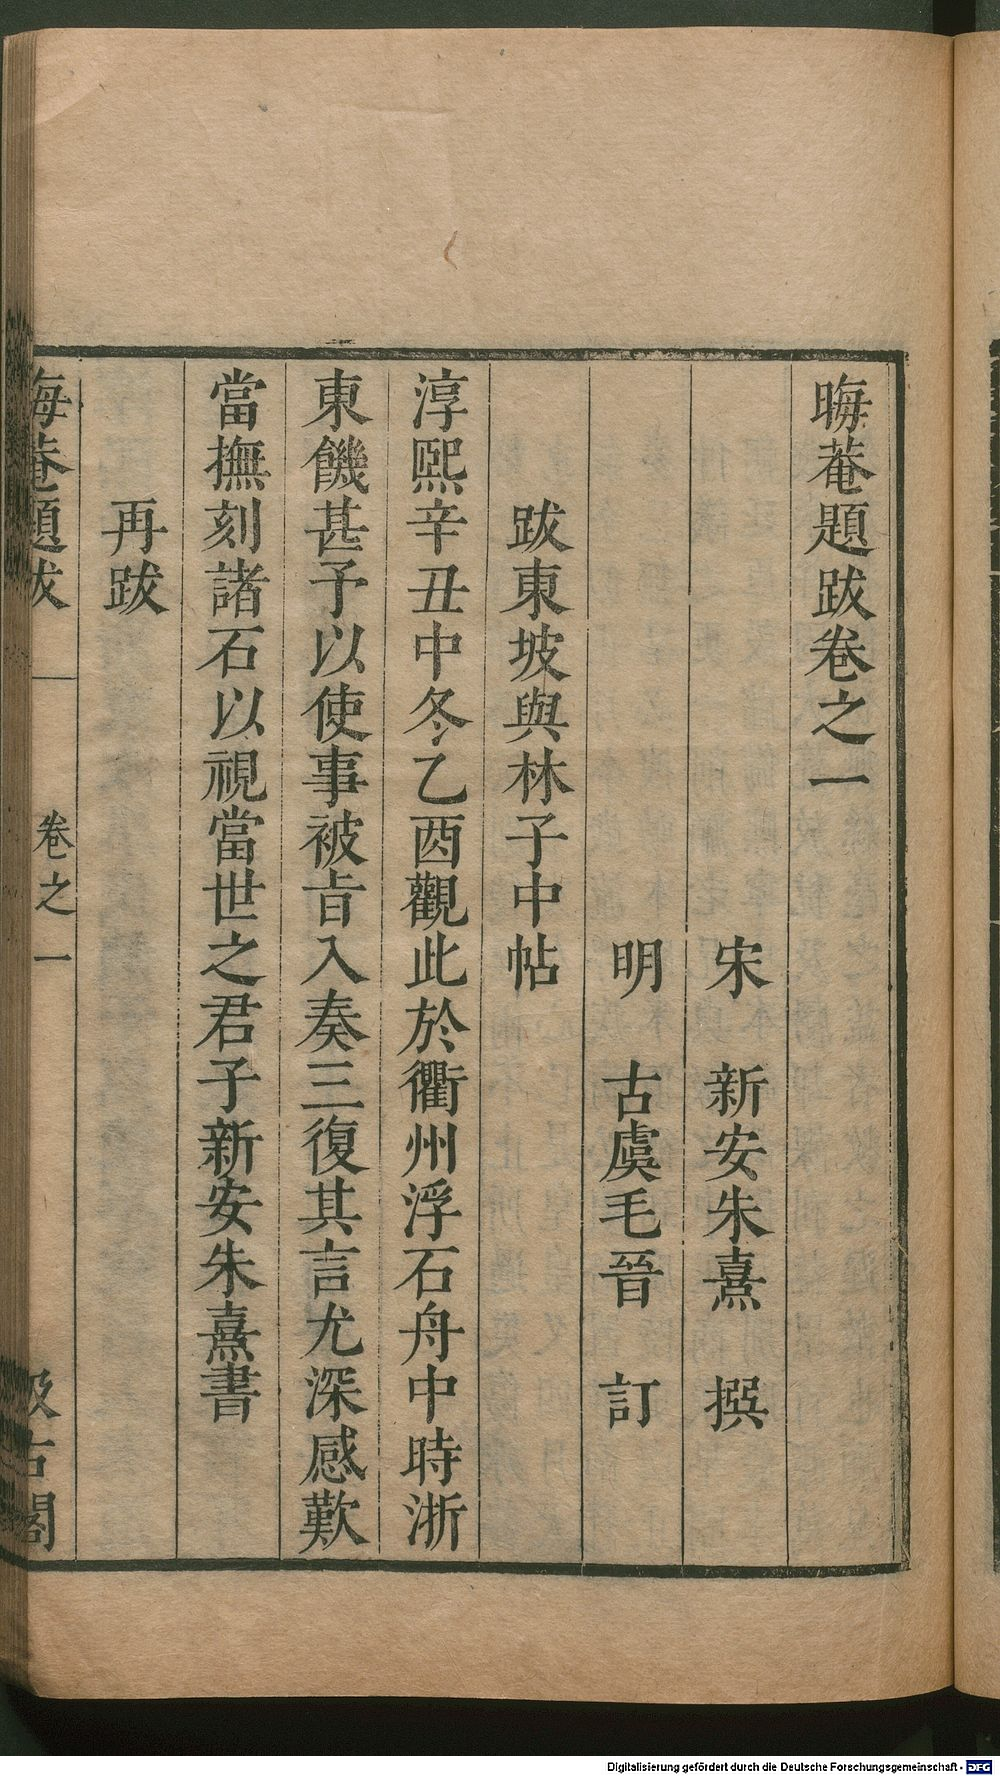 晦菴題跋卷之一
宋 新安朱熹 撰
明 古虞毛晉 訂
跋東坡與林子中帖
淳熙辛丑中冬乙酉觀此於衢州浮石舟中時浙
東饑甚予以使事被㫖入奏三復其言尤深感歎
當撫刻諸石以視當世之君子新安朱熹書
再跋
晦菴題跋 卷之一 汲古閣
Digitalisierung gefördert durch die Deutsche Forschungsgemeinschaft - DFG